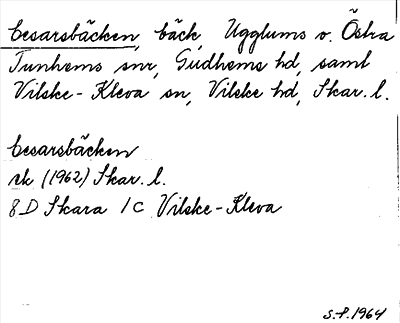 Cesarsbäcken, bäck, Ugglums o. Östra
Tunhems snr, Gudhems hd, samt
Vilske-Kleva sn, Vilske hd, Skar. l.
Cesarsbäcken
rk (1962) Skar. l.
8 D Skara 1 C Vilske-Kleva
S.P. 1964